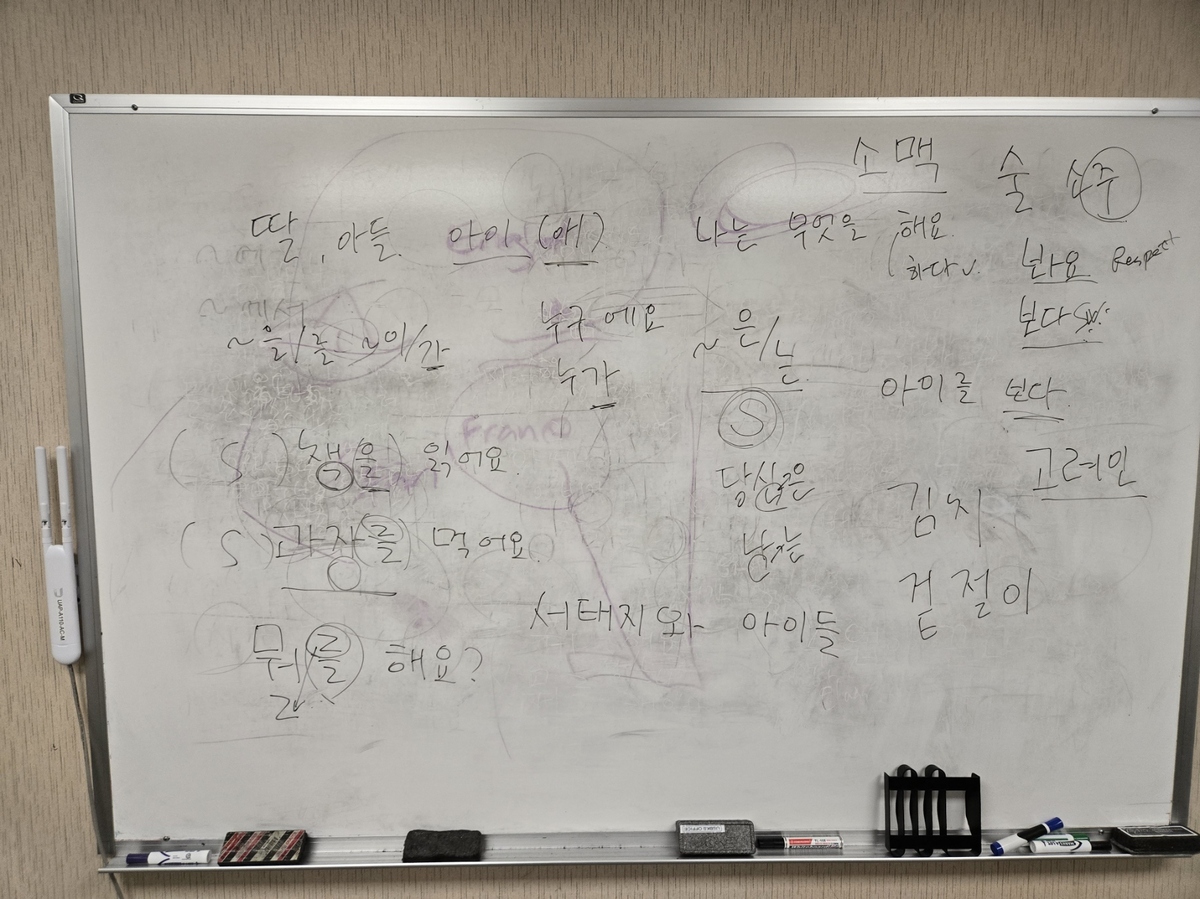 소맥 술 소주
딸, 아들. 아이 (애). 나는 무엇을 해요.
하다 v. 봐요 Respect
~에서
~을/를 ~이/가 누구 에요 ~은/는 보다
누가 아이를 보다.
S
( S ) 책을) 읽어요. 고려인
당신은 김치
( S ) 과자를) 먹어요. 남자는
겉절이
서태지와 아이들
뭐를 해요?
ㄹ
France